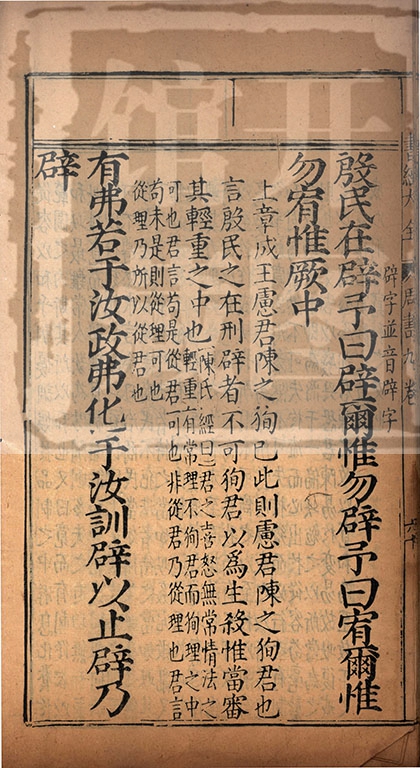 辟字並音辟字
殷民在辟予曰辟爾惟勿辟予曰宥爾惟
勿宥惟厥中
上章成王慮君陳之狥己此則慮君陳之狥君也
言殷民之在刑辟者不可狥君以爲生殺惟當審
其輕重之中也
陳氏經曰君之喜怒無常情法之
輕重有常理不狥君而狥理之中
可也君言苟是從君可也非從君乃從理也君言
苟未是則從理可也
從理乃所以從君也
有弗若于汝政弗化于汝訓辟以止辟乃
辟